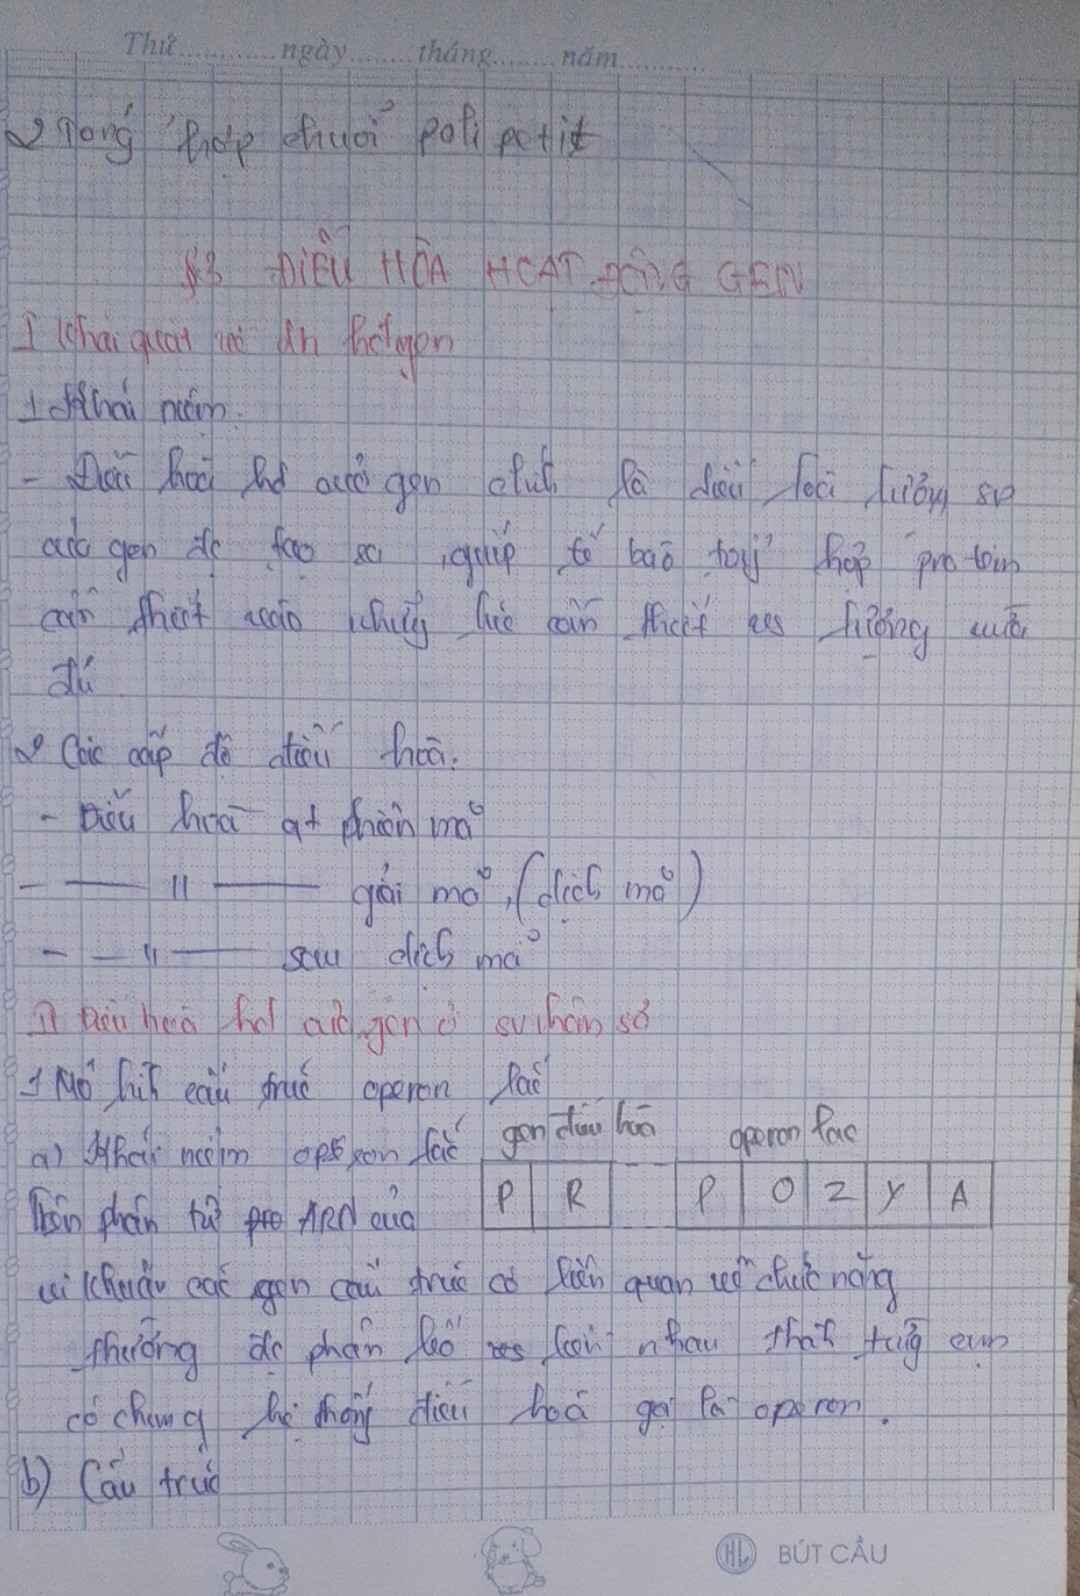 Thứ ........ ngày ........ tháng ........ năm ........
2 Tổng hợp chuỗi poli petit
§3 ĐIỀU HÒA HOẠT ĐỘNG GEN
I Khái quát về đh hđ gen
1 Khái niệm.
- Điều hoà hđ của gen chính là điều hoà lượng sp
của gen đc tạo ra, giúp tế bào tổng hợp protein
cần thiết vào những lúc cần thiết vs lượng vừa
đủ
2 Các cấp độ điều hoà.
- Điều hoà at phiên mã
- — " — giải mã, (dịch mã)
- — " — sau dịch mã
II Điều hoà hđ của gen ở sv nhân sơ
1 Mô hình cấu trúc operon lac
a) Khái niệm operon lac
gen điều hoà operon lac
P R P O Z Y A
Trên phân tử ARN của
vi khuẩn các gen cấu trúc có liên quan về chức năng
thường đc phân bố liền nhau thành từng cụm
có chung hệ thống điều hoà gọi là operon.
b) Cấu trúc
HL BÚT CẦU